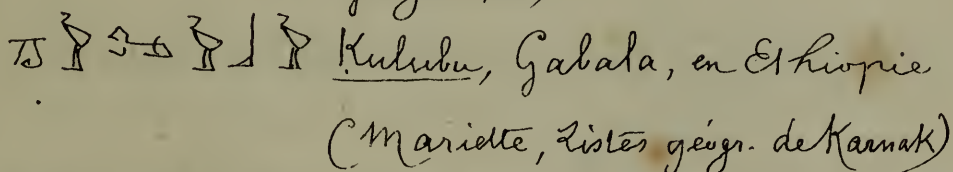 Kulubu, Gabala, en Ethiopie
(Mariette, Listes géogr. de Karnak)